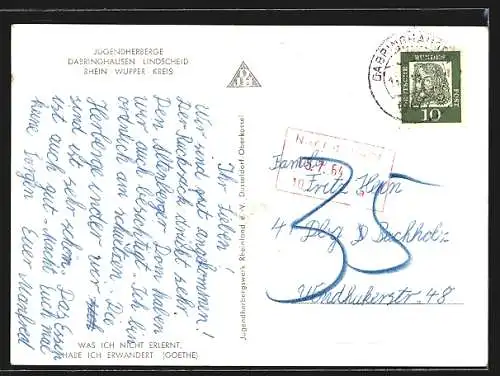 JUGENDHERBERGE
DABRINGHAUSEN LINDSCHEID
RHEIN WUPPER KREIS
Ihr Lieben!
Wir sind gut angekommen!
Der Rucksack drückt sehr.
Den Altenberger Dom haben
wir auch besichtigt. Ich bin
ordentlich am schwitzen. Die
Herberge in der wir
sind ist sehr schön. Das Essen
ist auch gut. Macht Euch mal
keine Sorgen Euer Manfred
WAS ICH NICHT ERLERNT,
HABE ICH ERWANDERT (GOETHE)
Jugendherbergswerk Rheinland e. V. Düsseldorf Oberkassel
DABRINGHAUSEN
DEUTSCHE BUNDES POST
10
64
35
Familie
Fritz Heen
41 Dbg D Buchholz
Windhukerstr. 48